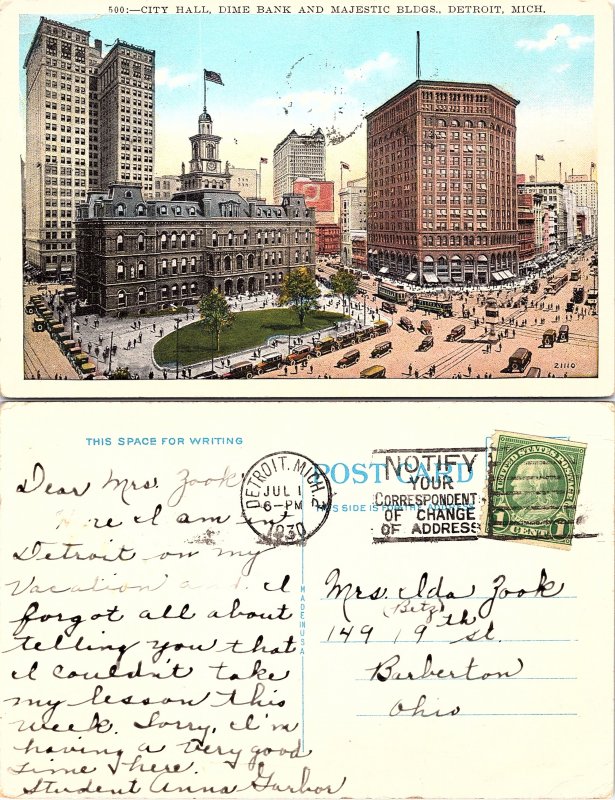 500:—CITY HALL, DIME BANK AND MAJESTIC BLDGS., DETROIT, MICH.
21110
THIS SPACE FOR WRITING
POST CARD
THIS SIDE IS FOR THE ADDRESS
DETROIT, MICH. 2
JUL 1
6-PM
1930
NOTIFY
YOUR
CORRESPONDENTS
OF CHANGE
OF ADDRESS
UNITED STATES POSTAGE
1 CENT 1
MADE IN U.S.A.
Dear Mrs. Zook
re I am in
Detroit on my
Vacation and I
forgot all about
telling you that
I couldn't take
my lesson this
week. Sorry, I'm
having a very good
time here.
Student Anna Garbor
Mrs. Ida Zook
(Betz)
149 19th St.
Barberton
Ohio